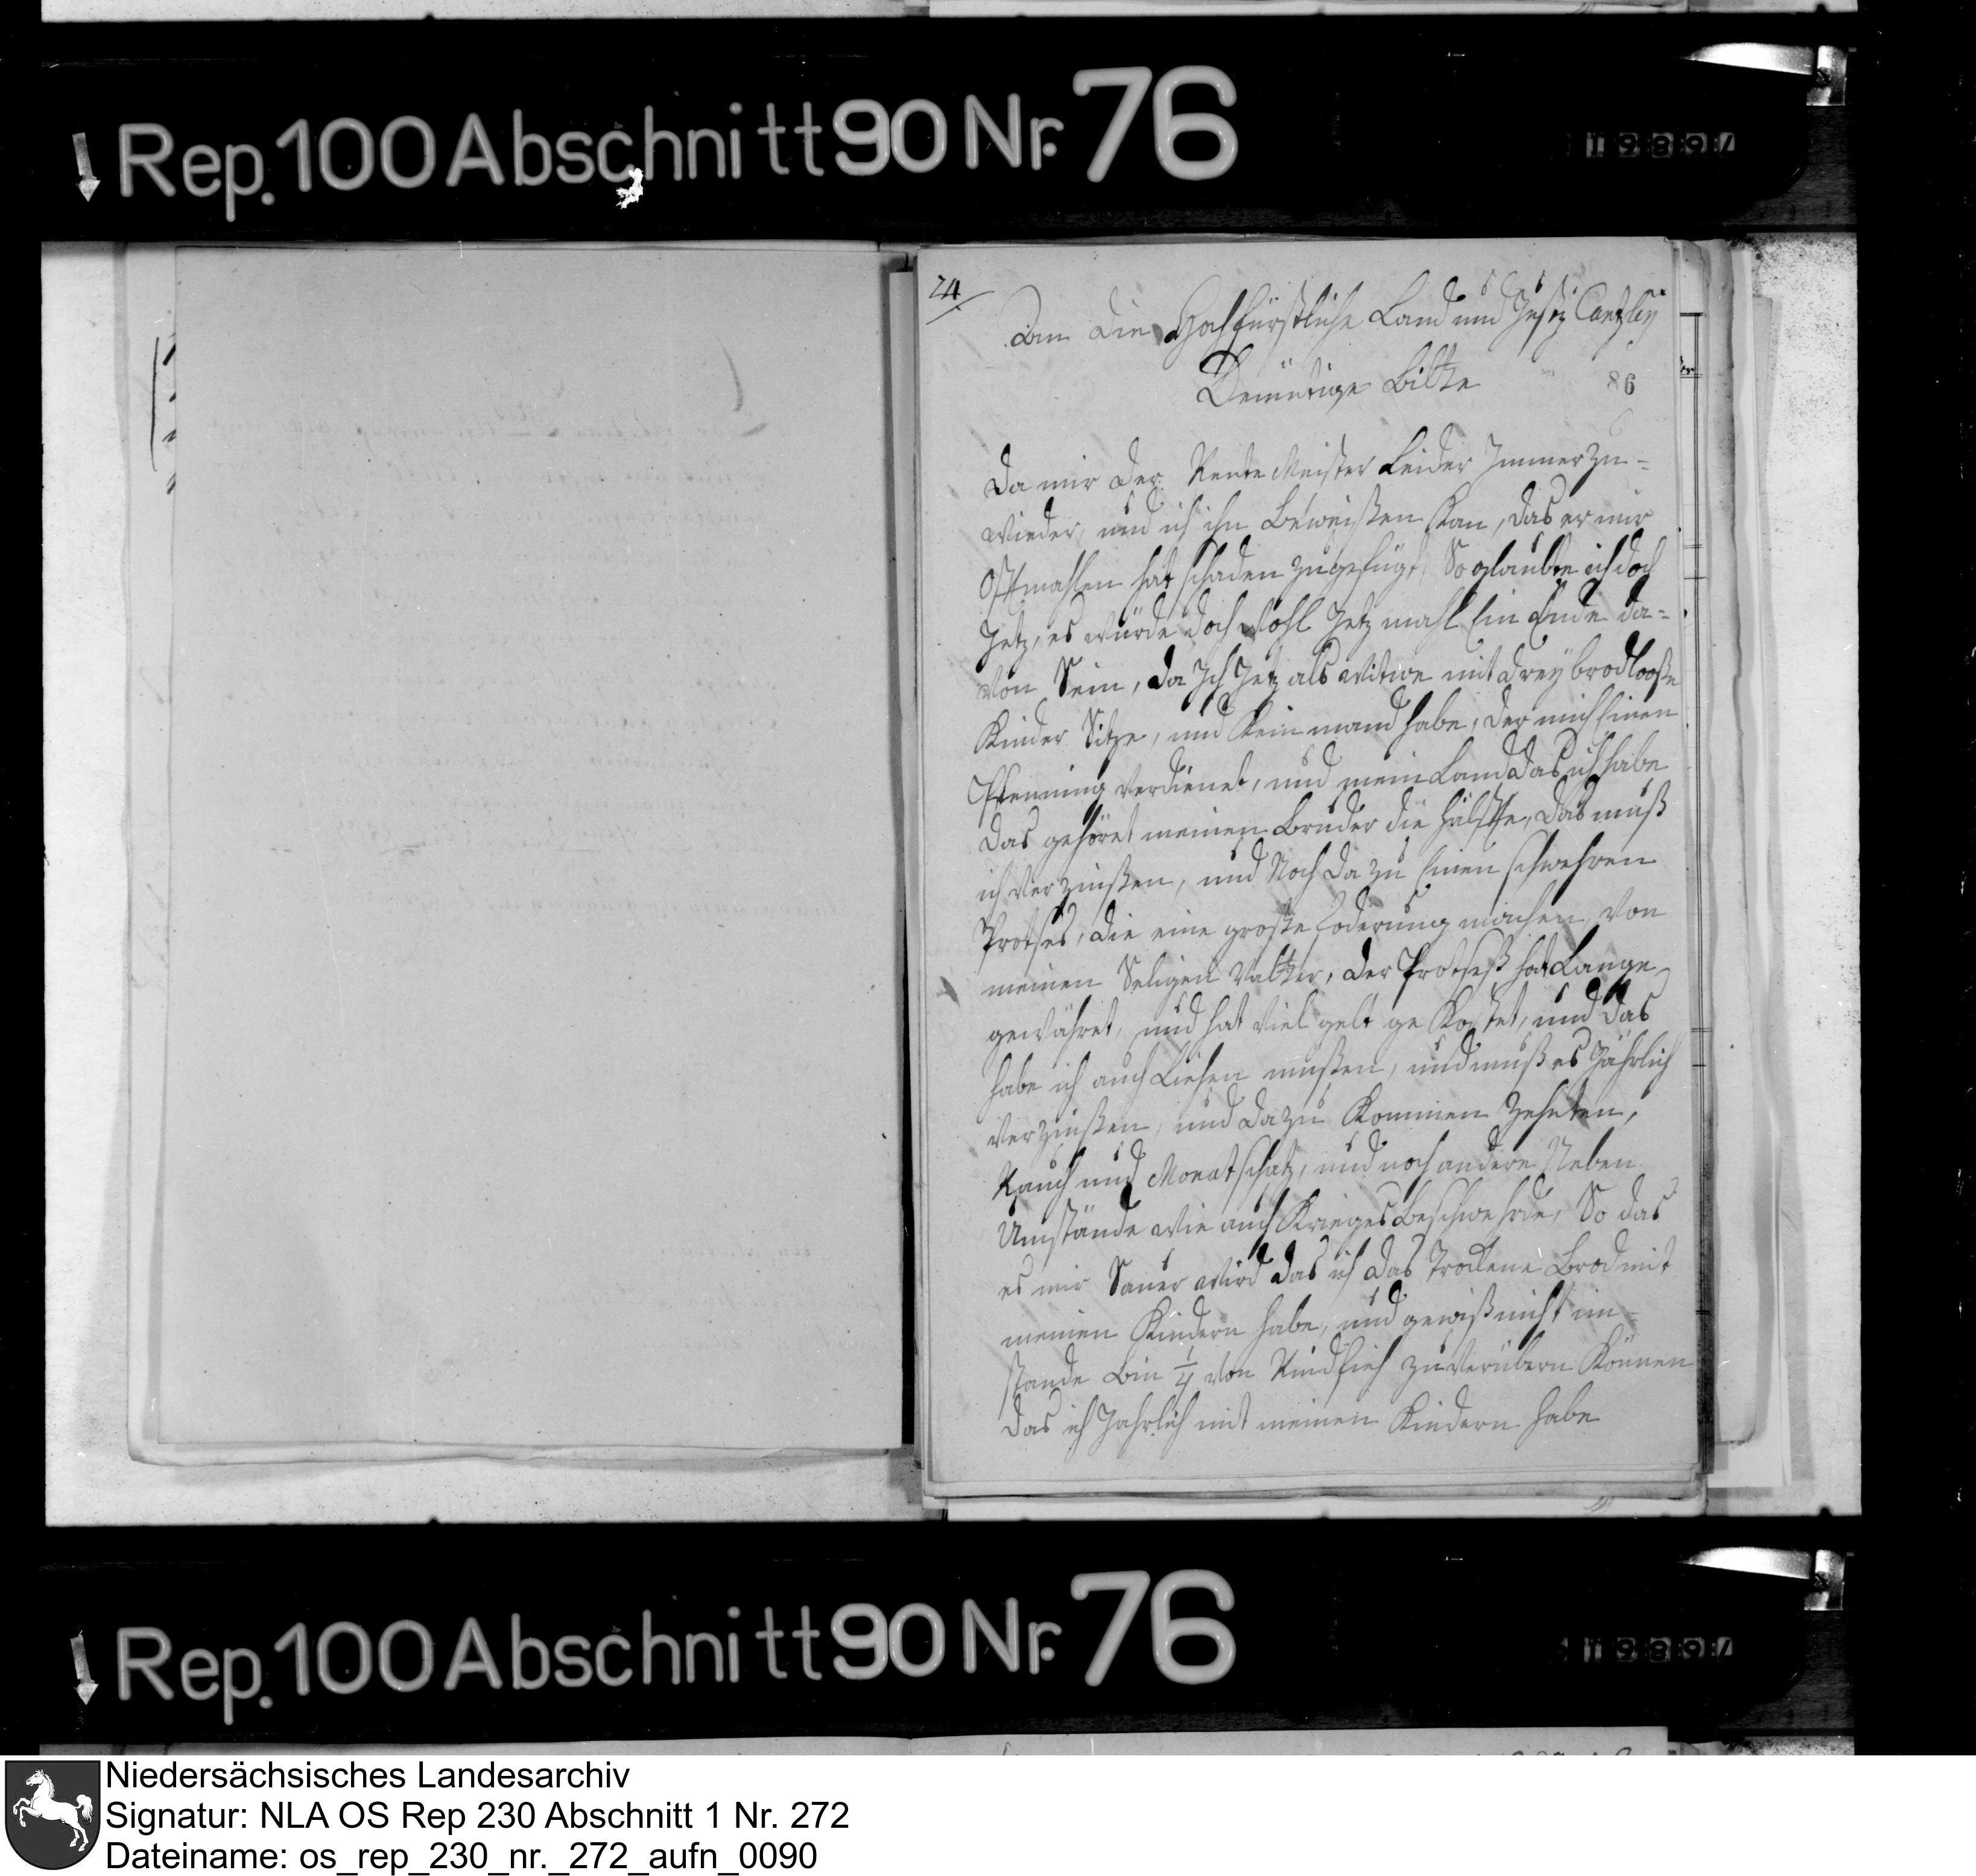 Rep. 100 Abschnitt 90 Nr. 76
19897
24
An die Hochfürstliche Land und Justz Cantzley
Demütige bitte
86
Da mir der Rente Meister Leider Immer zu-
wieder, und ich ihn beweißen kan, das er mir
Oftmahlen hat schaden zugefügt, So glaubte ich doch
Jetz, es würde doch wohl Jetz mahl Ein Ende da-
von Sein, da Ich Jetz als witwe mit drey brodlooße
Kinder Sitze, und kein mand habe, der mich Einen
Pfenning verdienet, und mein Land das ich habe
das gehöret meinen Bruder die Hälffte, das muß
ich verzinßen, und Noch dazu Einen schwehren
Protses, die eine große foderung machen, von
meinen Seligen Vatter, der Protseß hat Lange
gewähret, und hat viel gelt gekostet, und das
habe ich auch Liehen müßen, und muß es Jährlich
verzinßen, und dazu kommen Zehnten,
Rauch und Monatschatz, und noch andere Neben
Umstände wie auch Krieges beschwehrde, So das
es mir Sauer wird das ich das Trockene Brod mit
meinen Kindern habe, und gewiß nicht im-
stande bin 1/4 von Rindfieh zu verübern können
das ich Jahrlich mit meinen Kindern habe
Rep. 100 Abschnitt 90 Nr. 76
19897
Niedersächsisches Landesarchiv
Signatur: NLA OS Rep 230 Abschnitt 1 Nr. 272
Dateiname: os_rep_230_nr._272_aufn_0090